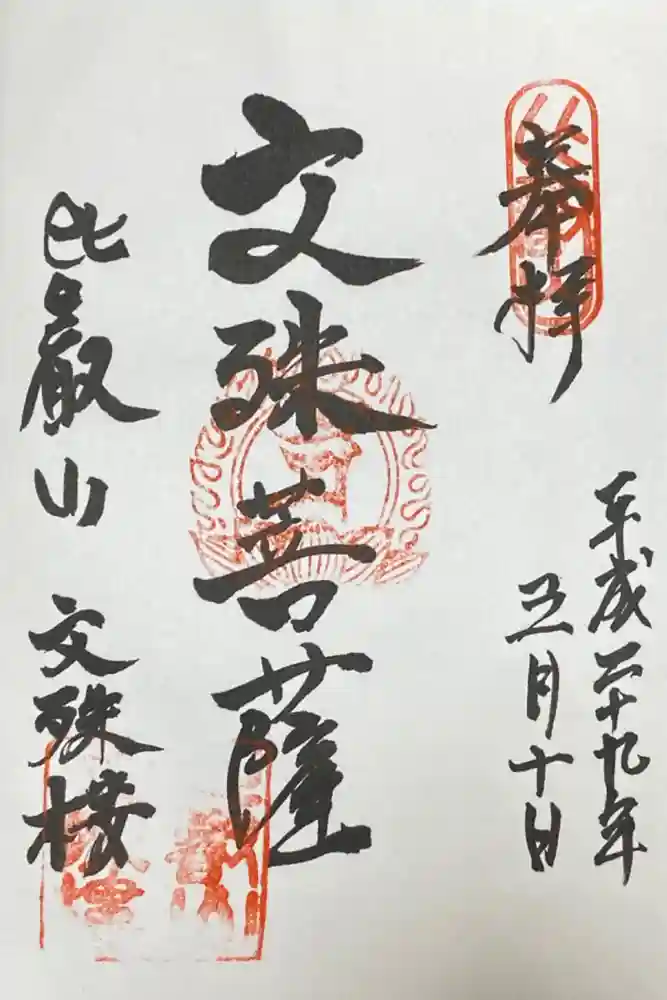 奉拝
平成二十九年
五月十日
文殊菩薩
比叡山 文殊楼